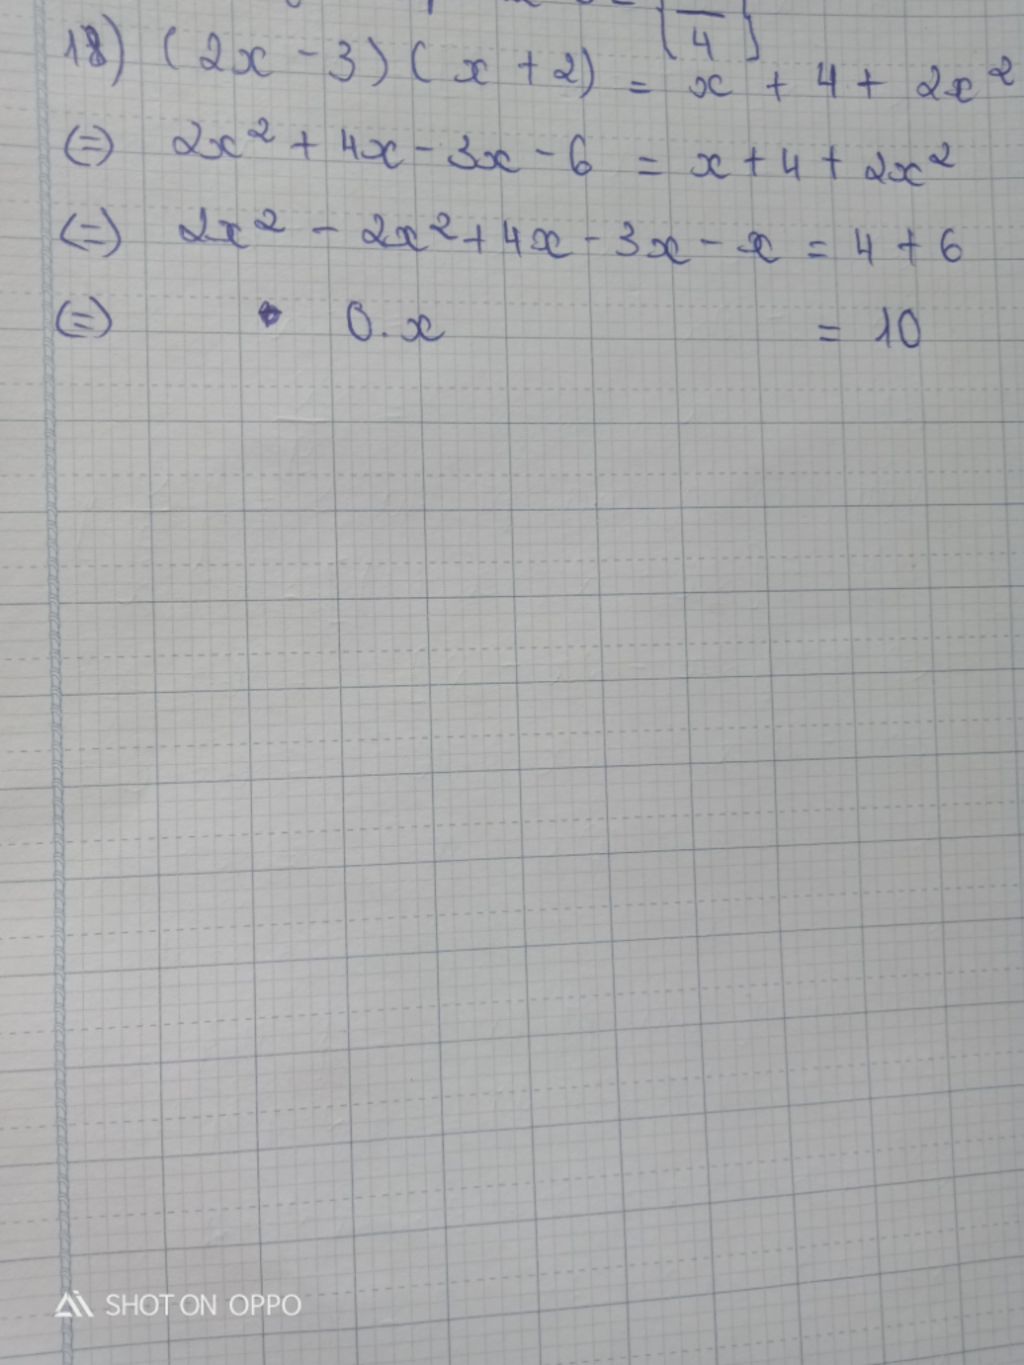 4
18) (2x - 3)(x + 2) = x + 4 + 2x²
(=) 2x² + 4x - 3x - 6 = x + 4 + 2x²
(=) 2x² - 2x² + 4x - 3x - x = 4 + 6
(=) 0.x = 10
SHOT ON OPPO